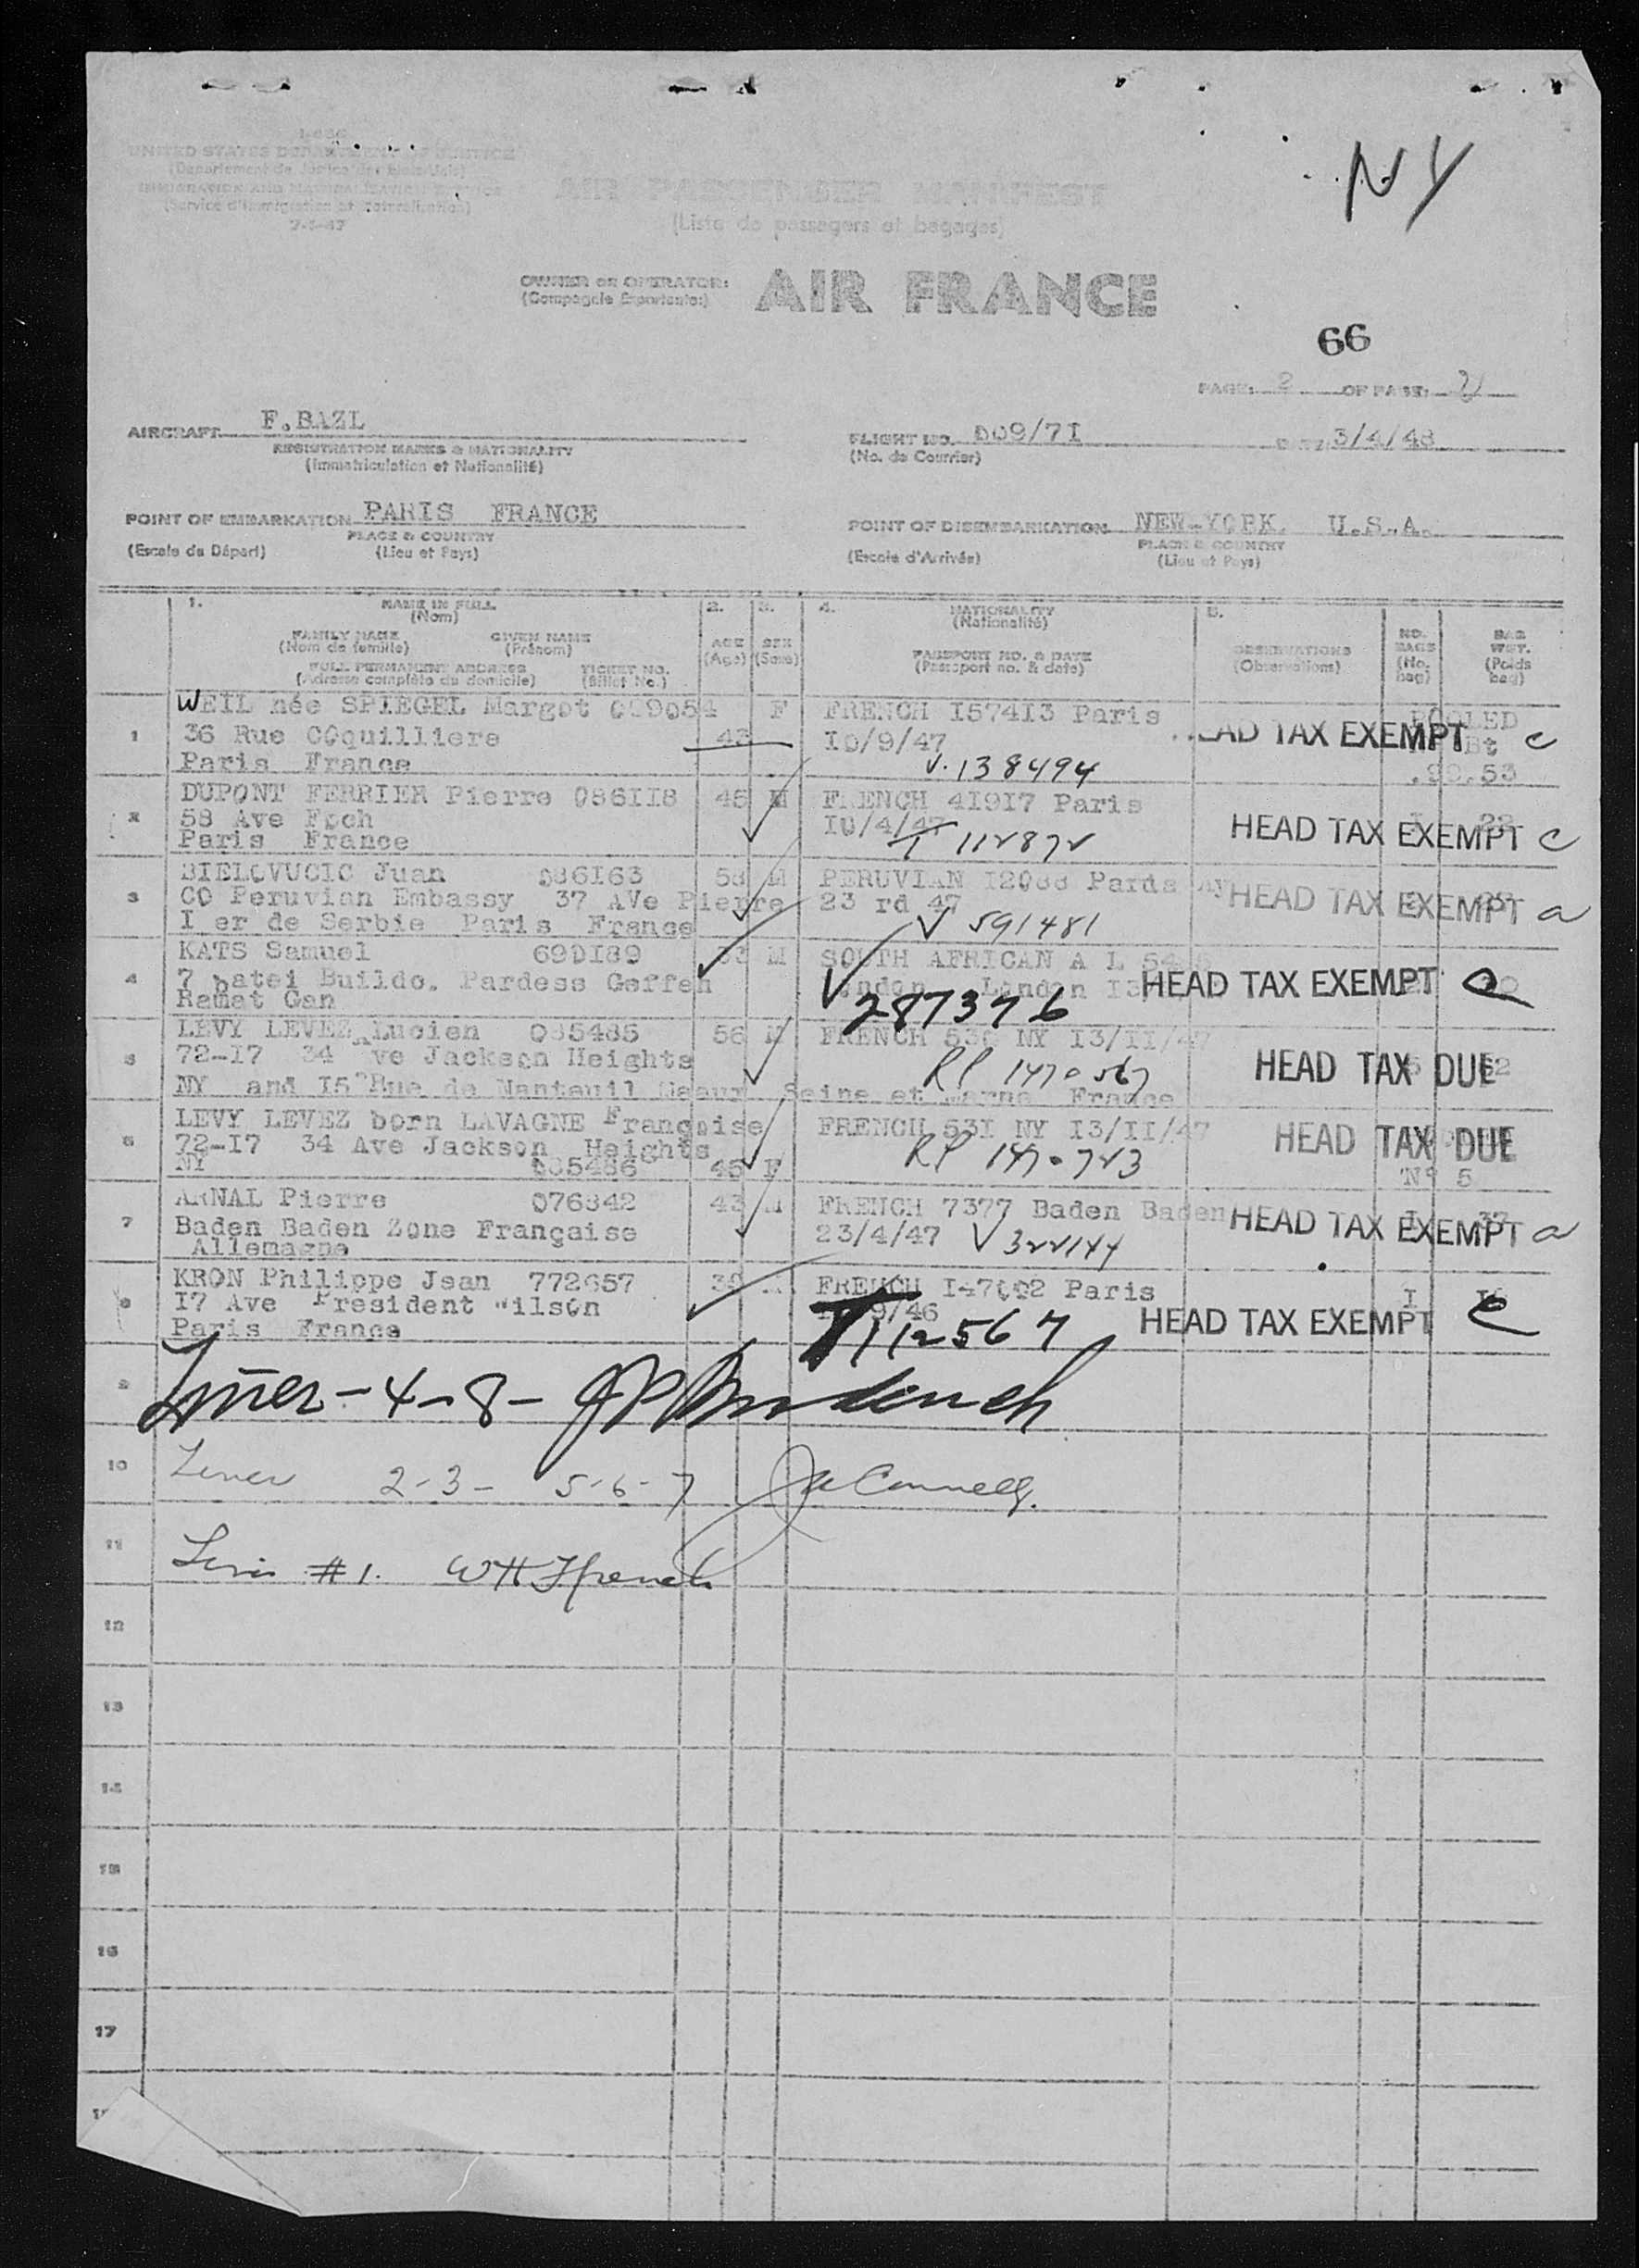 I-466
UNITED STATES DEPARTMENT OF JUSTICE
(Departement de Justice des Etats-Unis)
IMMIGRATION AND NATURALIZATION SERVICE
(Service d'immigration et naturalisation)
7-1-47
NY
AIR PASSENGER MANIFEST
(Liste de passagers et bagages)
OWNER OR OPERATOR: AIR FRANCE
(Compagnie Exportante:)
66
PAGE: 2 OF PAGE:
AIRCRAFT F.BAZL
REGISTRATION MARKS & NATIONALITY
(Immatriculation et Nationalité)
FLIGHT NO. 009/7I 3/4/48
(No. de Courrier)
POINT OF EMBARKATION PARIS FRANCE
PLACE & COUNTRY
(Escale de Départ) (Lieu et Pays)
POINT OF DISEMBARKATION NEW-YORK, U.S.A.
PLACE & COUNTRY
(Escale d'Arrivée) (Lieu et Pays)
1. NAME IN FULL 2. 3. 4. NATIONALITY 5.
(Nom) (Nationalité)
FAMILY NAME GIVEN NAME AGE SEX OBSERVATIONS NO. BAGS BAG WGT.
(Nom de famille) (Prénom) (Age) (Sexe) PASSPORT NO. & DATE (Observations) (No. bag) (Poids bag)
FULL PERMANENT ADDRESS TICKET NO. (Passeport no. & date)
(Adresse complète du domicile) (Billet No.)
1 WEIL née SPIEGEL Margot 089054 F FRENCH I574I3 Paris POOLED
36 Rue COquilliere 43 I0/9/47 HEAD TAX EXEMPT c
Paris France V.138494
DUPONT FERRIER Pierre 086II8 45 M FRENCH 4I9I7 Paris
58 Ave Foch I0/4/47 HEAD TAX EXEMPT c
Paris France T 112872
3 BIELOVUCIC Juan 086I63 58 M PERUVIAN
CO Peruvian Embassy 37 AVe Pierre 23 rd 47 HEAD TAX EXEMPT a
I er de Serbie Paris France V 591481
4 KATS Samuel 690I89 33 M SOUTH AFRICAN A L
7 Batei Buildo. Pardess Geffen London HEAD TAX EXEMPT
Ramat Gan V 287376
5 LEVY LEVEZ Lucien 085485 56 M FRENCH 530 NY I3/II/47
72-I7 34 Ave Jackson Heights RP 1470567 HEAD TAX DUE
NY and I5 Rue de Nanteuil Meaux Seine et Marne France
6 LEVY LEVEZ born LAVAGNE Françoise FRENCH 53I NY I3/II/47
72-I7 34 Ave Jackson Heights RP 1470723 HEAD TAX DUE
NY 085486 45 F N° 5
7 ARNAL Pierre 076842 43 M FRENCH 7377 Baden Baden
Baden Baden Zone Française 23/4/47 V 322144 HEAD TAX EXEMPT a
Allemagne
8 KRON Philippe Jean FRENCH Paris
I7 Ave President Wilson 9/46 HEAD TAX EXEMPT c
Paris France T 112567
9 Lines - 4-8 -
10 Lines 2-3- 5-6-7
11 Line #1. W H Ffrench
12
13
14
15
16
17